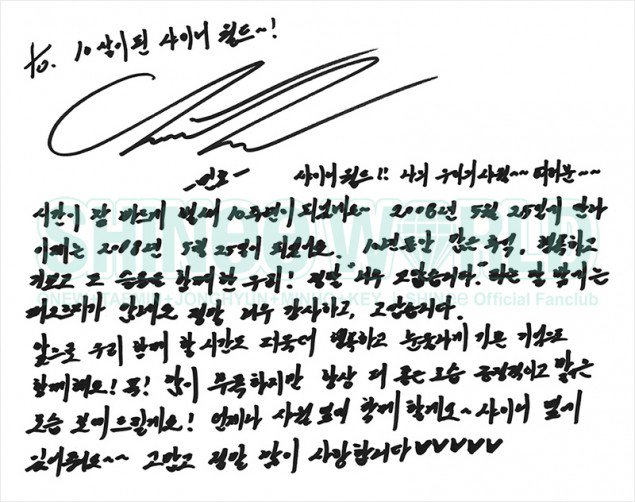 to. 10살이 된 샤이니 월드~!
-민호-
샤이니월드!! 나의 우리의 사랑~~ 여러분~~
시간이 참 빠르게 벌써 10주년이 되었네요~ 2008년 5월 25일이 한
이제는 2018년 5월 25일이 되었네요. 10년동안 많은 추억, 행복하고
기쁘고 또 슬픔을 함께 한 우리! 정말 너무 고맙습니다. 라는 말 밖에는
떠오르지가 않네요 정말 너무 감사하고, 고맙습니다.
앞으로 우리 함께 할 시간도 더욱더 행복하고 눈부시게 기쁜 기억으로
함께해요! 꼭! 많이 부족하지만 항상 더 좋은 모습 긍정적이고 밝은
모습 보여드릴게요! 언제나 샤월 옆에 함께 할게요~ 샤이니 옆에
있어줘요~~ 고맙고 정말 많이 사랑합니다♥♥♥♥♥
SHINee WORLD
ONEW+TAEMIN+JONGHYUN+MINHO+KEY SHINee Official Fanclub